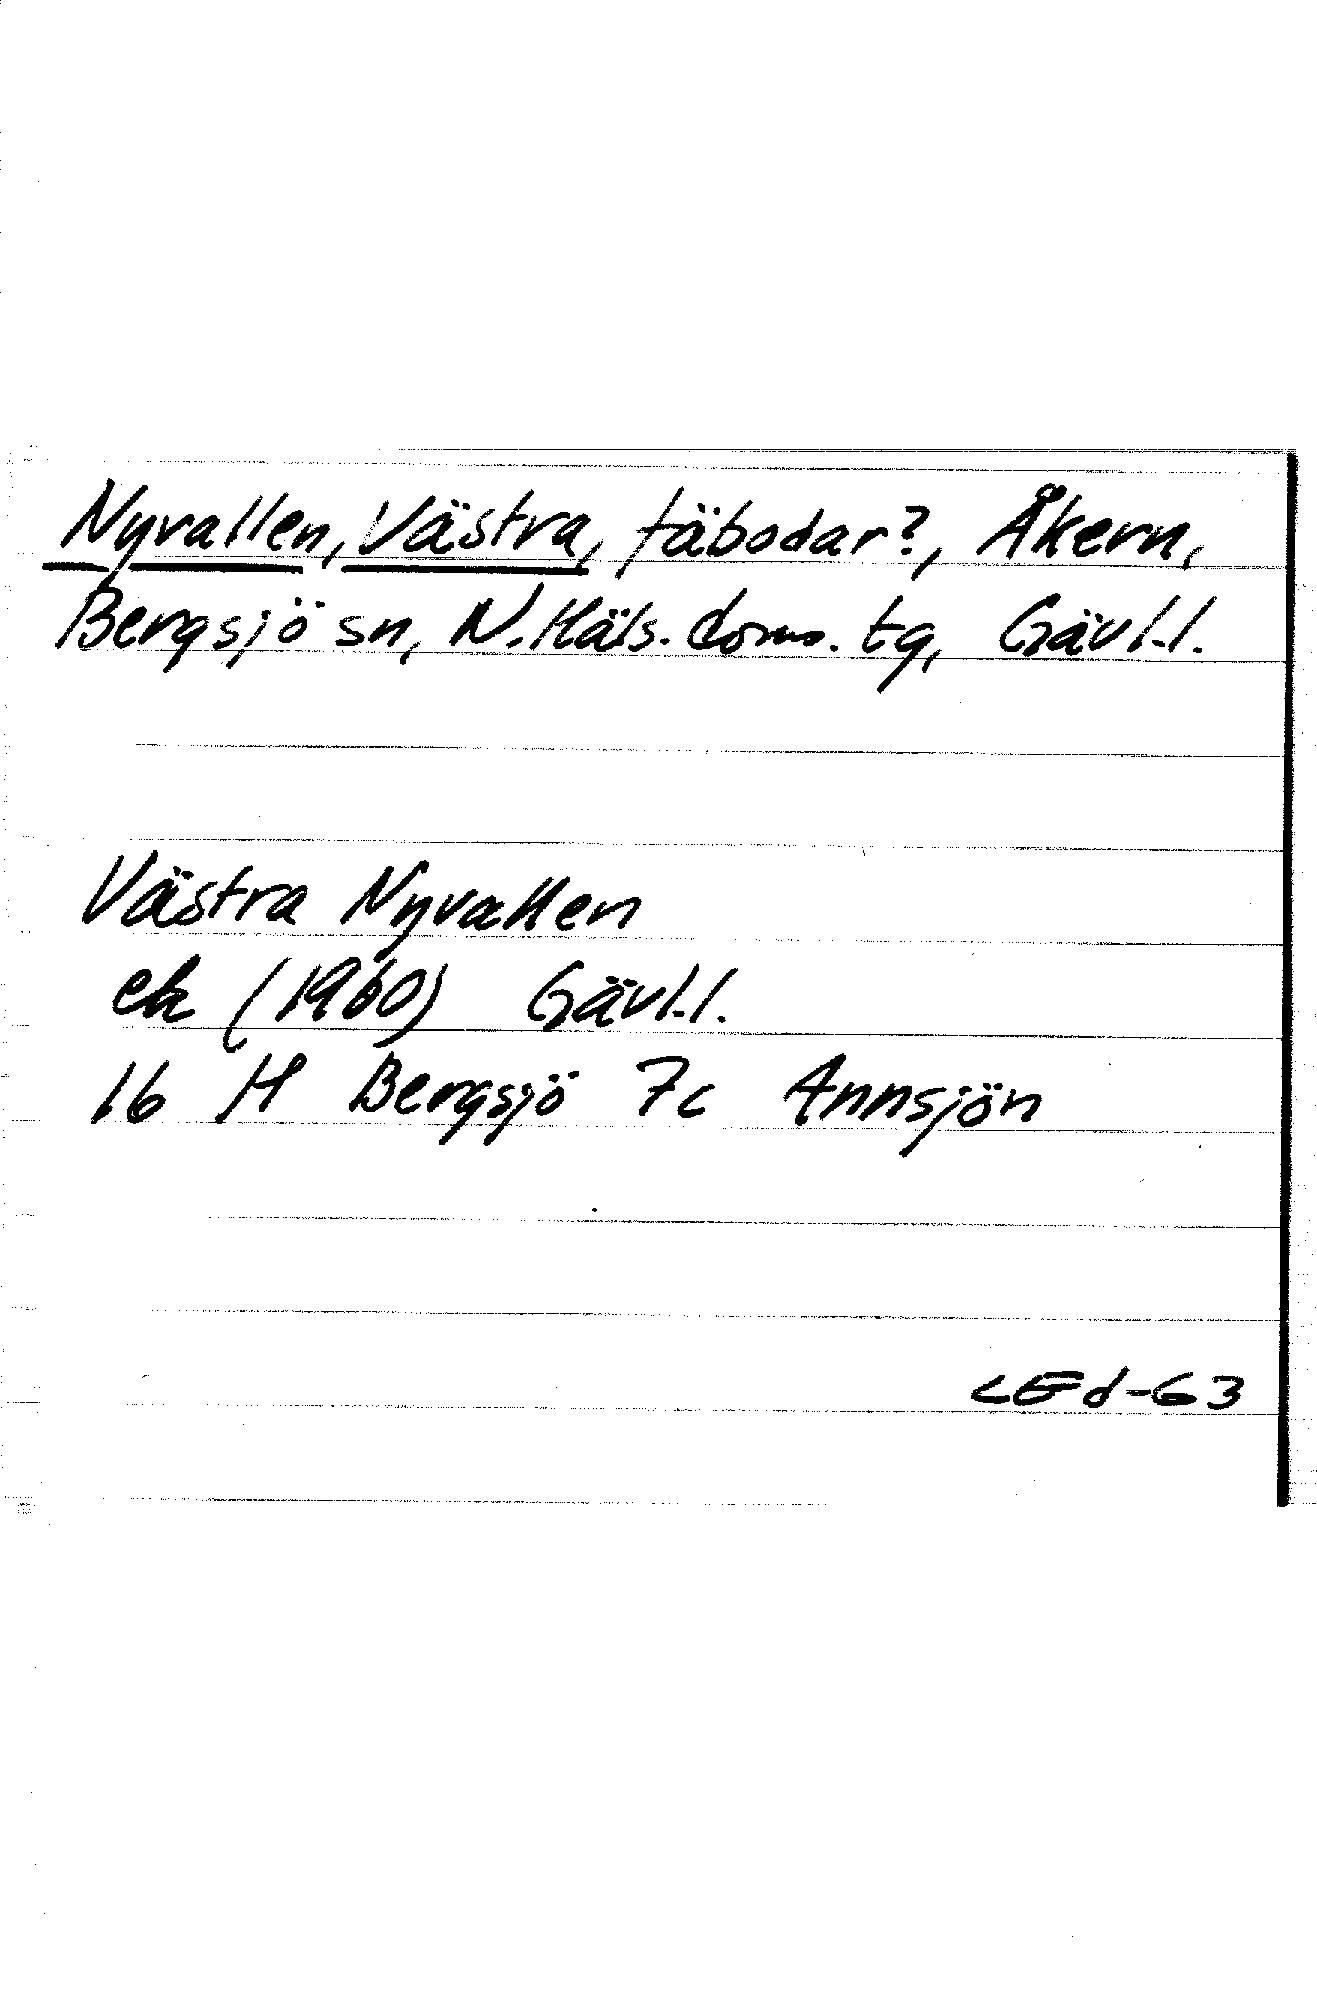 Nyvallen, Västra, fäbodar?, Åkern,
Bergsjö sn, N. Häls. doms. tg, Gävl.l.
Västra Nyvallen
ek (1960) Gävl.l.
16 H Bergsjö 7c Annsjön
-63